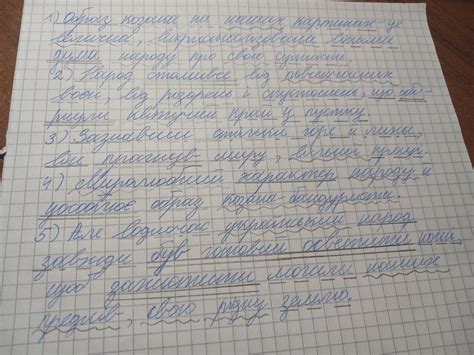 1) Образ козака на наших картинах - це
велична, матеріалізована віками
дума народу про свою сутність.
2) Народ стомився від повсякчасних
воєн, від розорень і спустошень, що обер-
нули квітучий край у пустку
3) Зазнавши стільки горя и лиха,
він прагнув миру, вічної праці.
4) Миролюбний характер народу и
уособлює образ козака-бандуриста.
5) Але водночас український народ
завжди був готовий осідлати коня,
щоб захистити могили
предків, свою рідну землю.